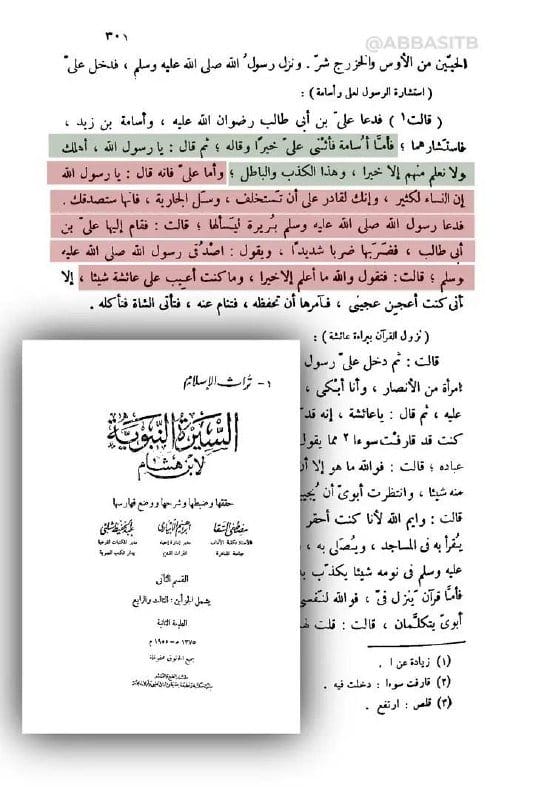 ٣٠١
@ABBASITB
الحيّين من الأوس والخزرج شرّ. ونزل رسول الله صلى الله عليه وسلم ، فدخل علىّ
( استشارة الرسول لعلى وأسامة ) :
( قالت ١ ) فدعا علىّ بن أبى طالب رضوان الله عليه ، وأسامة بن زيد ،
فاستشارهما ؛ فأمَّا أُسامة فأثْنى علىّ خيرًا وقاله ؛ ثم قال : يا رسول الله ، أهلك
ولا نعلم منهم إلا خيرا ، وهذا الكذب والباطل ؛ وأما علىّ فانه قال : يا رسول الله
إن النساء لكثير ، وإنك لقادر على أن تَستخلف ، وسَل الجارية ، فانها ستصدقك .
فدعا رسول الله صلى الله عليه وسلم بُريرة ليَسألها ؛ قالت : فقام إليها علىّ بن
أبى طالب ، فضربها ضربا شديدًا ، ويقول : اصدُقى رسول الله صلى الله عليه
وسلم ؛ قالت : فتقول والله ما أعلم إلا خيرا ، وما كنت أعيب على عائشة شيئا ، إلا
أنى كنت أعجن عجينى ، فآمرها أن تحفظه ، فتنام عنه ، فتأتى الشاة فتأكله .
( نزول القرآن ببراءة عائشة ) :
قالت : ثم دخل علىّ رسول
امرأة من الأنصار ، وأنا أبكى ،
عليه ، ثم قال : يا عائشة ، إنه قد
كنت قد قارفْت سوءا ٢ مما يقول
عباده ؛ قالت : فوالله ما هو إلا أن
منه شيئا ، وانتظرت أبوىّ أن يُجيبا
قالت : وايم الله لأنا كنت أحقر
يُقرأ به فى المساجد ، ويُصلى به ،
عليه وسلم فى نومه شيئا يكذّب به
فأمَّا قرآن يَنزل فىّ ، فوالله لنَفسى
أبوىّ يتكلَّمان ، قالت : قلت لهما
(١) زيادة عن ا .
(٢) قارفت سوءا : دخلت فيه .
(٣) قلص : ارتفع .
١ - تراث الإسلام
السيرة النبوية
لابن هشام
حققها وضبطها وشرحها ووضع فهارسها
مصطفى السقا إبراهيم الأبيارى عبد الحفيظ شلبى
القسم الثانى
يشمل الجزأين : الثالث والرابع
الطبعة الثانية
١٣٧٥ هـ - ١٩٥٥ م
جميع الحقوق محفوظة